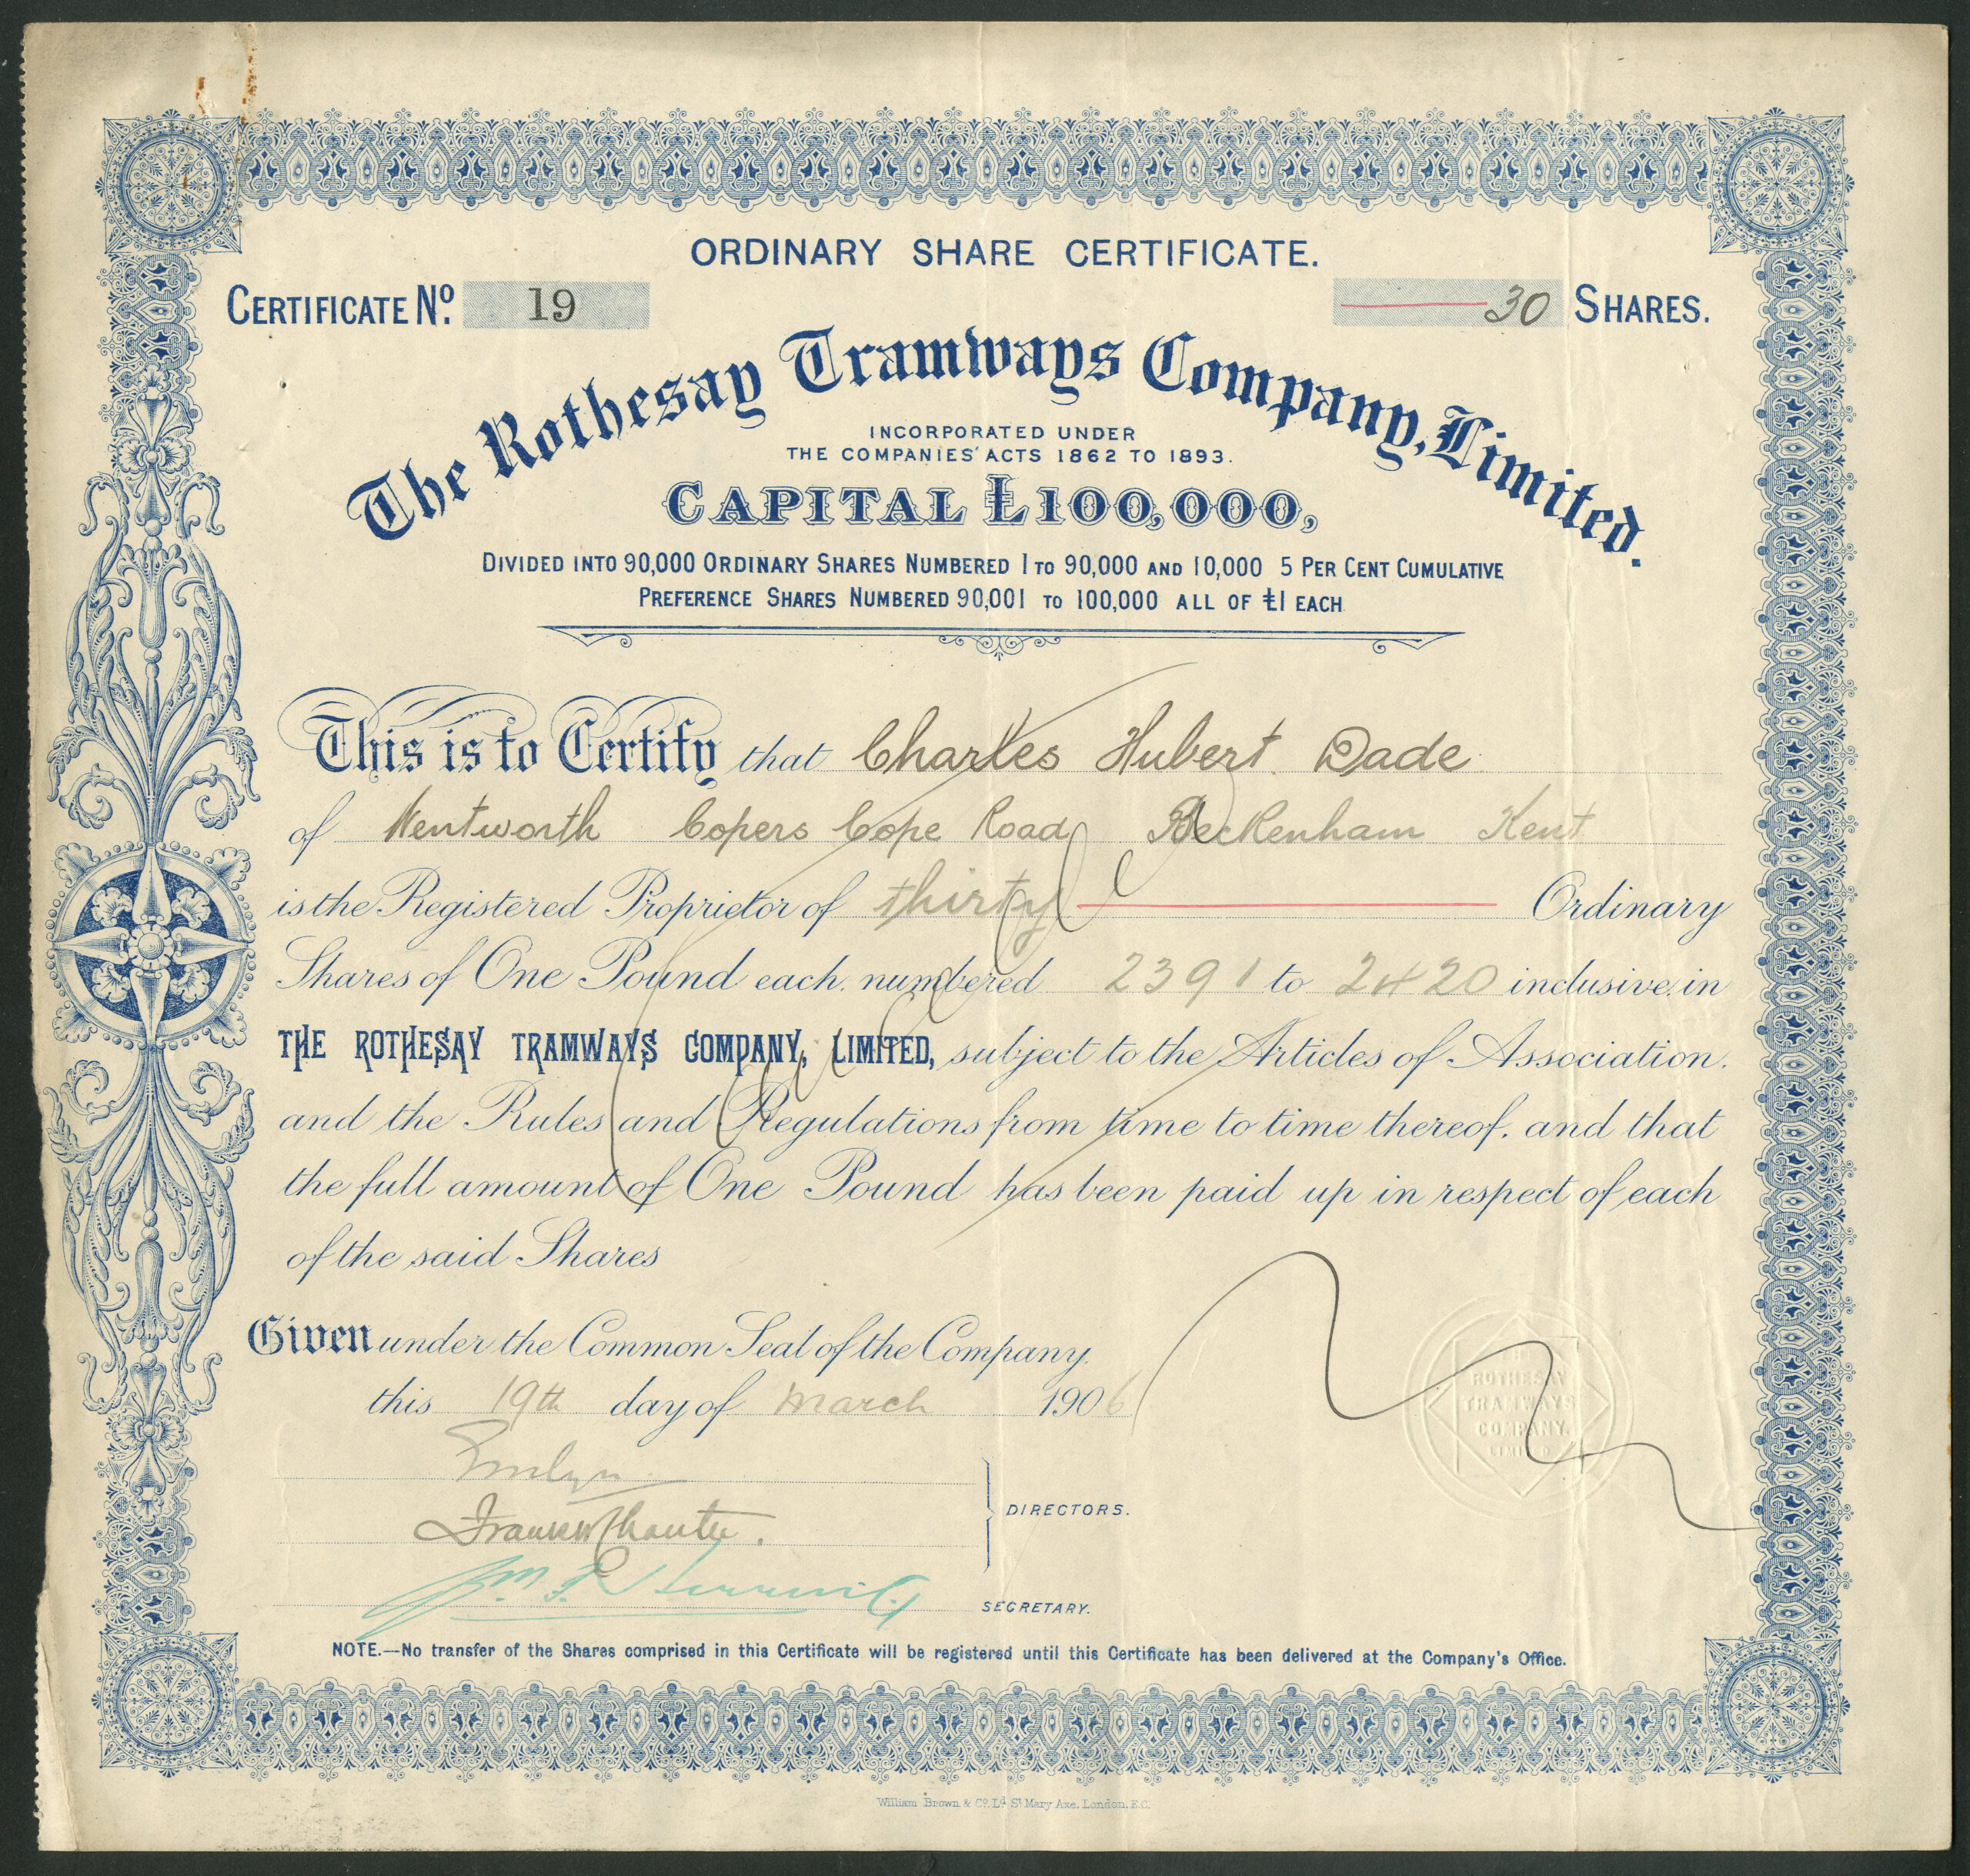 ORDINARY SHARE CERTIFICATE.
CERTIFICATE Nº. 19 30 SHARES.
The Rothesay Tramways Company, Limited.
INCORPORATED UNDER
THE COMPANIES' ACTS 1862 TO 1893.
CAPITAL £100,000,
DIVIDED INTO 90,000 ORDINARY SHARES NUMBERED 1 TO 90,000 AND 10,000 5 PER CENT CUMULATIVE
PREFERENCE SHARES NUMBERED 90,001 TO 100,000 ALL OF £1 EACH
This is to Certify that Charles Hubert Dade
of Wentworth Copers Cope Road Beckenham Kent
is the Registered Proprietor of thirty Ordinary
Shares of One Pound each. numbered 2391 to 2420 inclusive in
THE ROTHESAY TRAMWAYS COMPANY, LIMITED, subject to the Articles of Association.
and the Rules and Regulations from time to time thereof, and that
the full amount of One Pound has been paid up in respect of each
of the said Shares
Given under the Common Seal of the Company.
this 19th day of March 1906
ROTHESAY
TRAMWAYS
COMPANY,
LIMITED
Emlyn
DIRECTORS.
SECRETARY.
NOTE.—No transfer of the Shares comprised in this Certificate will be registered until this Certificate has been delivered at the Company's Office.
William Brown & Co. Ld. St Mary Axe, London, E.C.